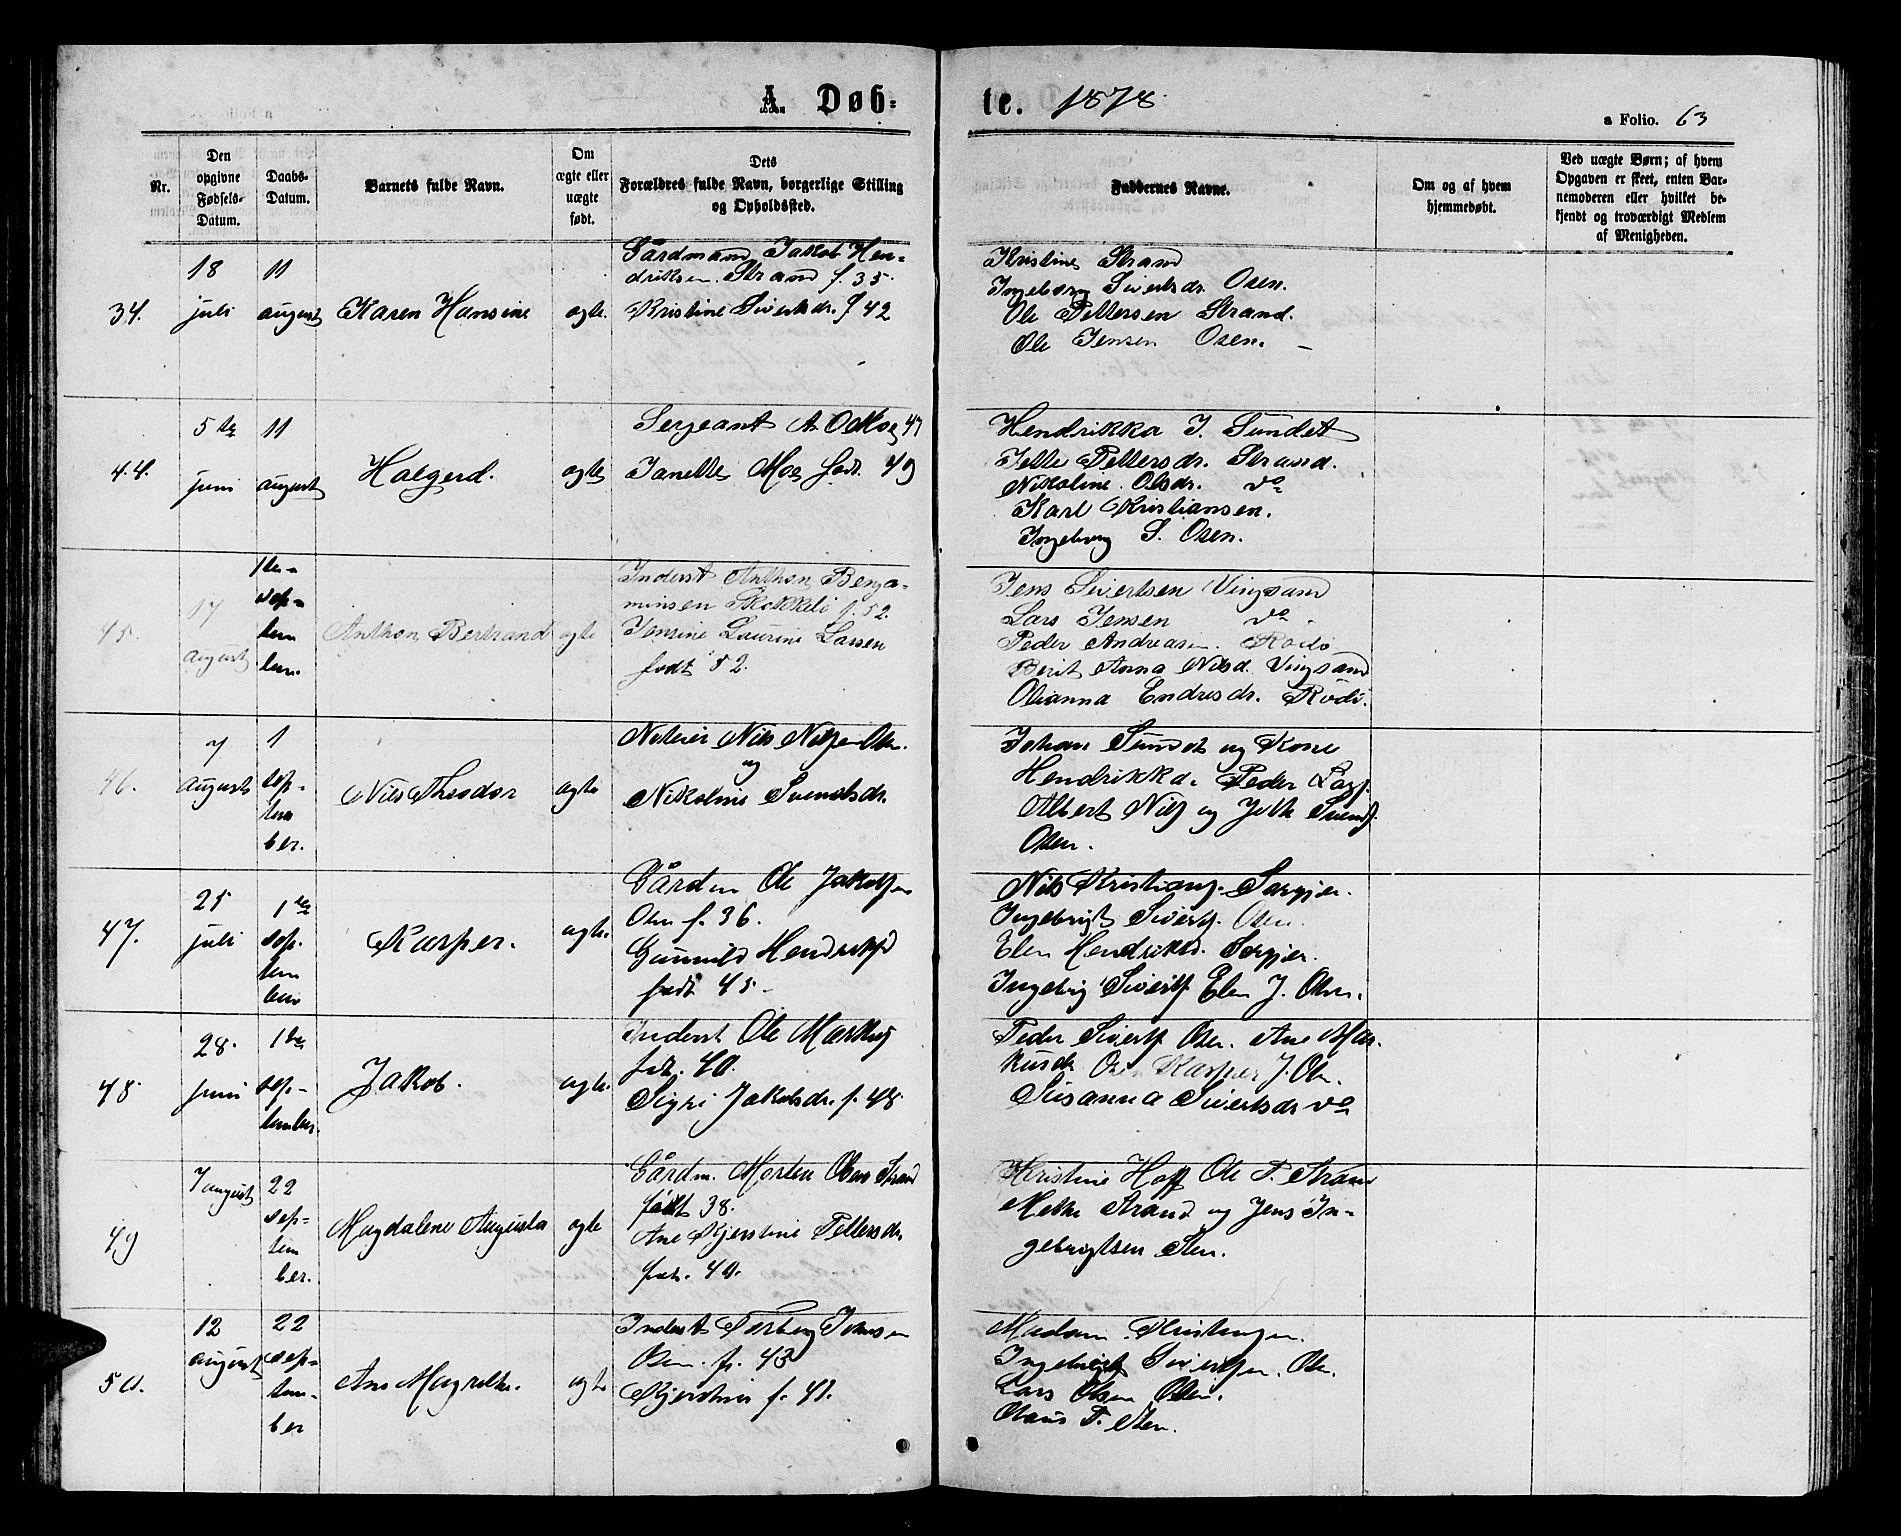 A. Døb-
te. 1878.
a Folio. 63
Nr.
Den opgivne Fødsels-Datum.
Daabs-Datum.
Barnets fulde Navn.
Om ægte eller uægte født.
Dets Forældres fulde Navn, borgerlige Stilling og Opholdssted.
Faddernes Navne.
Om og af hvem hjemmedøbt.
Ved uægte Børn; af hvem Opgaven er skeet, enten Barnemoderen eller hvilket bekjendt og troværdigt Medlem af Menigheden.
34.
18 juli
11 august
Karen Hansine
ægte.
Gårdmand Jakob Hen-
driksen Strand f. 35.
Kristine Sivertsdr. f 42
Kristine Strand
Ingeborg Sivertsdr. Osen.
Ole Pettersen Strand.
Ole Jensen Osen. –
44.
5te juni
11 august
Halgerd.
ægte
Sergeant A. O. Moe 47
Janette Moe født. 49
Hendrikka J. Sundet
Jette Pettersdr. Strand.
Nikoline Olsdr. do
Karl Kristiansen.
Ingeborg S. Osen.
45.
17 august
1te sep-
tem
ber.
Anthon Bertrand
ægte
Inderst Anthon Benja-
minsen Skokkeli f. 52.
Jensine Laurine Larsen
født 52.
Jens Sivertsen Vingsand
Lars Jensen do.
Peder Andreasen Rodø
Berit Anna Nilsd. Vingsand
Olianna Endresdr. Rodø.
46.
7 august
1 sep-
tem
ber.
Nils Theodor
ægte
Nils Nilsen Osen.
og
Nikoline Svendsdr.
Johan Sundet og Kone
Hendrikka. Peder Lars.
Albert Nils og Jette Svends.
Osen.
47.
25 juli
1te sep.
tem
ber
Kasper.
ægte.
Gårdm Ole Jakobsen
Osen f. 36.
Gunnild Hendriksd
født 45.
Nils Kristians. Sørgjer.
Ingebrigt Siverts. Osen.
Elen Hendriksd. Sørgjer.
Ingebrig Siverts Elen J. Osen.
48.
28. juni
1te sep-
tember.
Jakob.
ægte.
Inderst Ole Markus
fød. 40.
Sigri Jakobsdr. f. 48
Peder Siverts Osen. Ane Mar-
kusdr Osen Kasper J. Osen.
Susanna Sivertsdr do
49
7 august
22 sep-
tem
ber.
Magdalene Augusta
ægte
Gårdm. Morten Olsen Strand
født 38.
Ane Kjerstine Pettersdr.
fød. 40.
Kristine Hoff Ole P. Strand
Mette Strand og Jens In-
gebrigtsen Sten.
50.
12 august
22 sep-
tem-
ber
Ane Magrethe.
ægte
Inderst Torberg Johnsen
Osen. f. 43
Kjerstine f. 41.
Madam Kristensen.
Ingebrigt Sivertsen. Osen.
Lars Olsen Osen.
Olaus P. Sten.